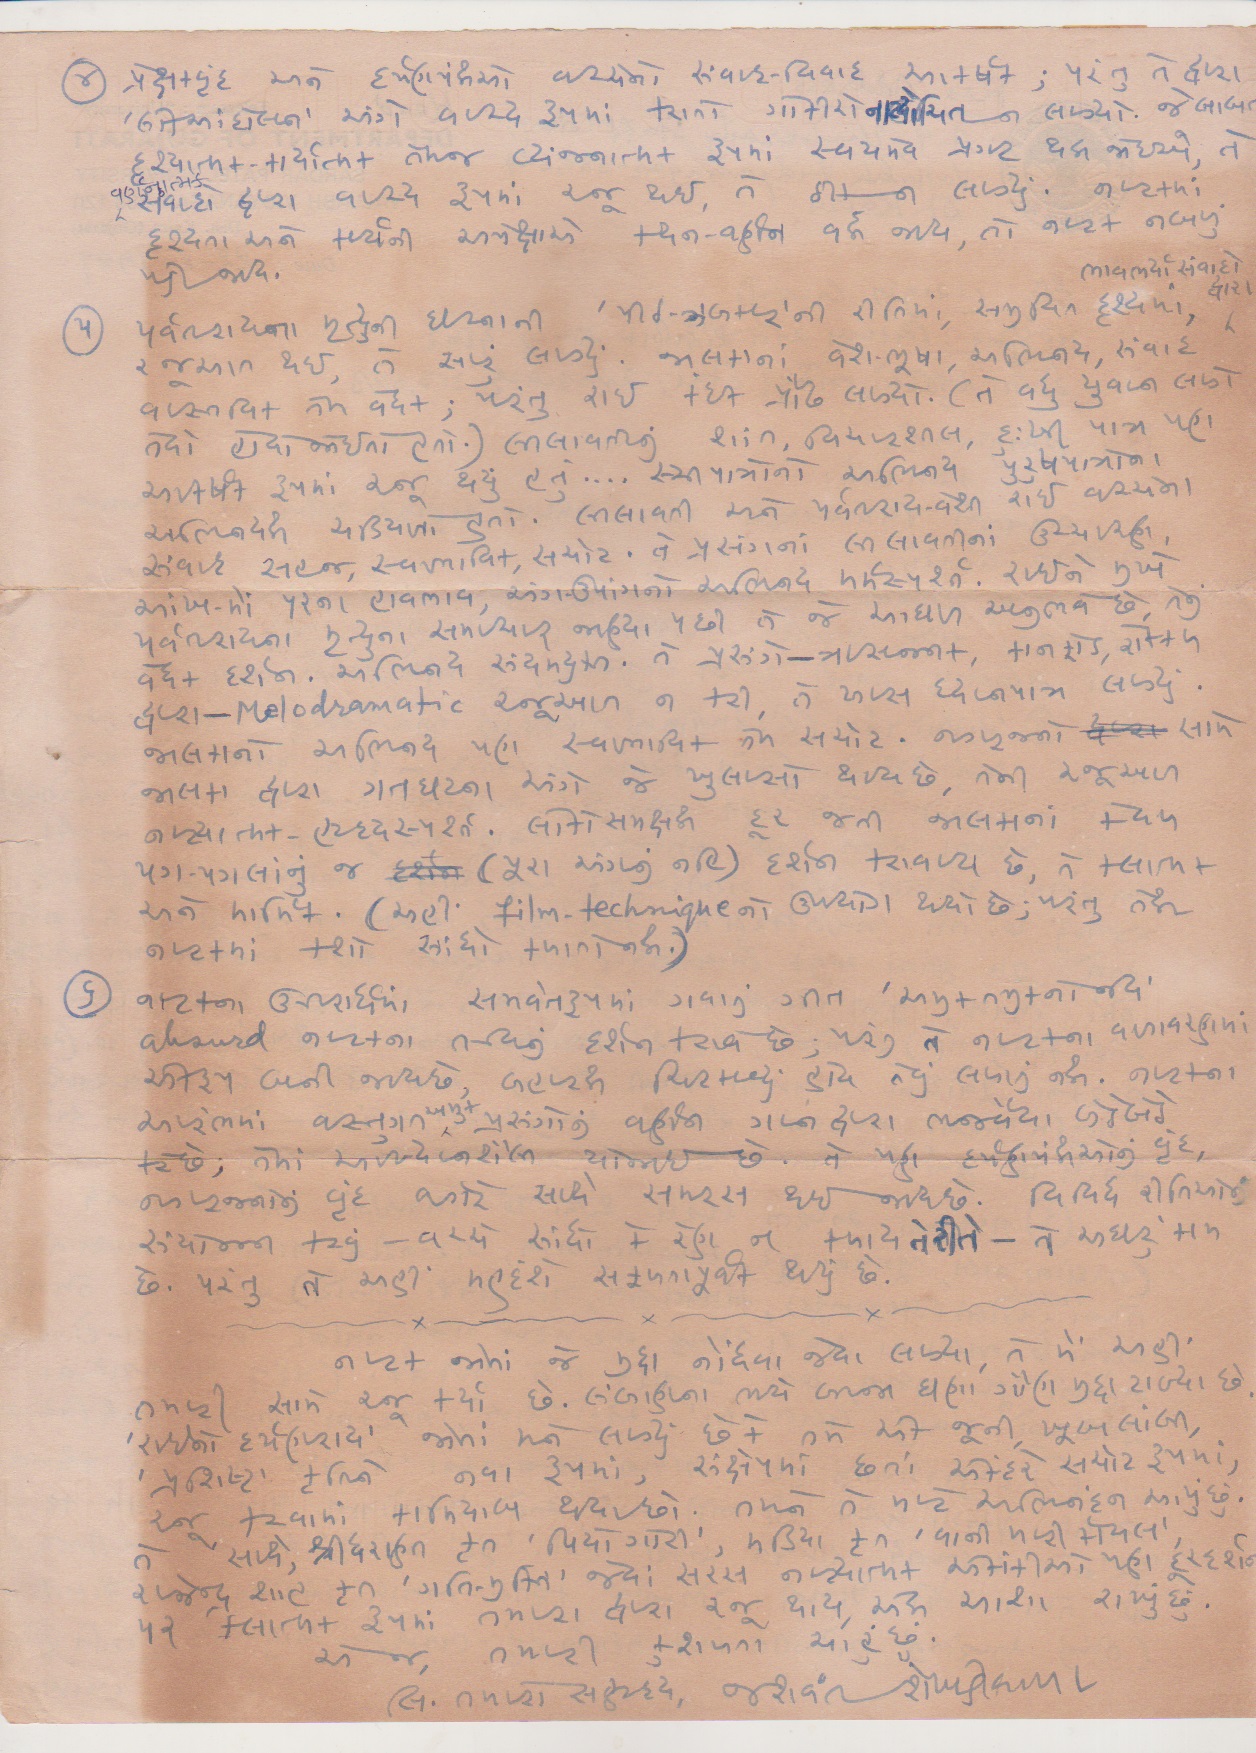 ૪ પ્રેક્ષકવૃંદ અને દર્પણપંથીઓ વચ્ચેનો સંવાદ-વિવાદ આકર્ષક; પરંતુ તે દ્વારા
અંગે વાચ્ય રૂપમાં થતો નાટ્યોચિત ન લાગ્યો. જે બાબત
દૃશ્યાત્મક-કાર્યાત્મક તેમજ વ્યંજનાત્મક રૂપમાં સ્વયમેવ પ્રગટ થવી જોઇએ, તે
વર્ણનાત્મક
સંવાદો દ્વારા વાચ્ય રૂપમાં રજૂ થઇ, તે ઠીક ન લાગ્યું. નાટકમાં
દૃશ્યતા અને કાર્યની અપેક્ષાએ કથન-વર્ણન વધી જાય, તો નાટક નબળું
પડી જાય.
ભાવભર્યા સંવાદો દ્વારા
૫ પર્વતરાયના મૃત્યુની ઘટનાની ની રીતિમાં, સમુચિત દૃશ્યમાં,
રજૂઆત થઇ, તે સારું લાગ્યું. જાલકાનાં વેશ-ભૂષા, અભિનય, સંવાદ
વાસ્તવિક તેમ વેધક; પરંતુ રાઇ કંઇક પ્રૌઢ લાગ્યો. (તે વધુ યુવાન લાગે
તેવો હોવો જોઇતો હતો.) લીલાવતીનું શાંત, વિચારશીલ, દુ:ખી પાત્ર પણ
આકર્ષક રૂપમાં રજૂ થયું હતું.... સ્ત્રીપાત્રોનો અભિનય પુરુષપાત્રોના
અભિનયથી ચડિયાતો હતો. લીલાવતી અને પર્વતરાય-વેશી રાઇ વચ્ચેના
સંવાદ સહજ, સ્વાભાવિક, સચોટ. તે પ્રસંગનાં લીલાવતીનાં ઉચ્ચારણ,
આંખ-મોં પરના હાવભાવ, અંગ-ઉપાંગનો અભિનય મર્મસ્પર્શી. રાઇને મુખે
પર્વતરાયના મૃત્યુના સમાચાર જાણ્યા પછી તે જે આઘાત અનુભવે છે, તેનું
વેધક દર્શન. અભિનય સંયમયુક્ત. તે પ્રસંગે—ત્રાસજનક, કાનફોડ, રોકકળ
દ્વારા—Melodramatic રજૂઆત ન કરી, તે ખાસ ધ્યાનપાત્ર લાગ્યું.
જાલકાનો અભિનય પણ સ્વાભાવિક તેમ સચોટ. નગરજનો સામે
જાલકા દ્વારા ગતઘટના અંગે જે ખુલાસો થાય છે, તેની રજૂઆત
નાટ્યાત્મક-હૃદયસ્પર્શી. લોકોસમક્ષથી દૂર જતી જાલકાનાં કેવળ
પગ-પગલાંનું જ (પૂરા અંગનું નહિ) દર્શન કરાવાય છે, તે કલાત્મક
અને માર્મિક. (અહીં film-techniqueનો ઉપયોગ થયો છે; પરંતુ તેથી
નાટકમાં કશો સાંધો કળાતો નથી.)
૬ નાટકના ઉત્તરાર્ધમાં સમવેતરૂપમાં ગવાતું ગીત 'અમુકતમુકનો જય'
absurd નાટકના તત્ત્વનું દર્શન કરાવે છે; પરંતુ તે નાટકના વાતાવરણમાં
એકરૂપ બની જાય છે, બહારથી ચિટકાવ્યું હોય તેવું લાગતું નથી. નાટકના
આરંભમાં વસ્તુગત અમુક પ્રસંગોનું વર્ણન ગાન દ્વારા ભજવૈયા
કરે છે; તેમાં આખ્યાનશૈલી યોજાઇ છે. તે પણ દર્પણપંથીઓનું વૃંદ,
નગરજનોનું વૃંદ વગેરે સાથે સમરસ થઇ જાય છે. વિવિધ રીતિઓનું
સંયોજન કરવું — વચ્ચે સાંધો કે રેણ ન કળાય તે રીતે — તે અઘરું કામ
છે. પરંતુ તે અહીં મહદંશે સફળતાપૂર્વક થયું છે.
નાટક જોતાં જે મુદ્દા નોંધવા જેવા લાગ્યા, તે મેં અહીં
તમારી સામે રજૂ કર્યા છે. લંબાણના ભયે બીજા ઘણા ગૌણ મુદ્દા ટાળ્યા છે.
'રાઇનો દર્પણરાય' જોતાં મને લાગ્યું છે કે તમે એક જૂની, ખૂબ લાંબી,
'પ્રશિષ્ટ' કૃતિને નવા રૂપમાં, સંક્ષેપમાં છતાં એકંદરે સચોટ રૂપમાં,
રજૂ કરવામાં કામિયાબ થયા છો. તમને તે માટે અભિનંદન આપું છું.
તે સાથે, શ્રીધરાણી કૃત 'પિયો ગોરી', મડિયા કૃત 'વાની મારી કોયલ',
રાજેન્દ્ર શાહ કૃત જેવાં સરસ નાટ્યાત્મક એકાંકીઓ પણ દૂરદર્શન
પર કલાત્મક રૂપમાં તમારા દ્વારા રજૂ થાય, એવી આશા રાખું છું.
એ જ, તમારી કુશળતા ચાહું છું.
લિ. તમારો સહૃદય, જશવંત શેખડીવાળા